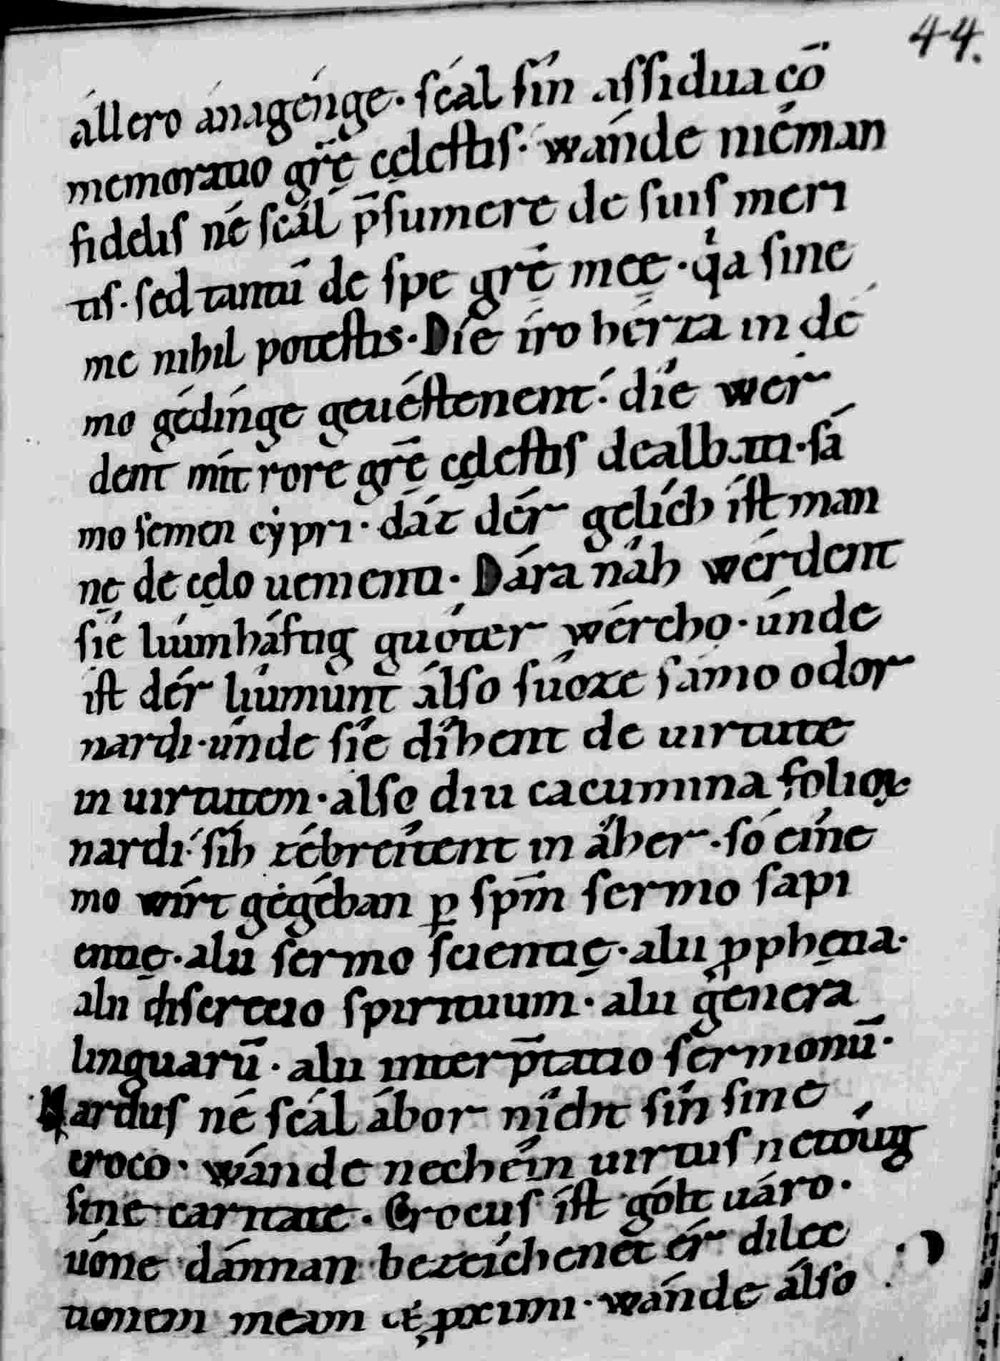 44.
állero ánagénge. scál sîn assidua cō
memoratio grē̜ cę̨lestis. wánde niéman
fidelis né scál p̄sumere de suis meri
tis. sed tantū de spe grē̜ meę. q̓a sine
me nihil potestis. Die íro hérza in dé
mo gédinge geuéstenent. díe wer
dent mít rore grē̜ cę̨lestis dealbati. sá
mo semen cẏpri. dáz dér gelích íst man
nę de cę̨lo uenienti. Dára náh wérdent
síe liúmháftig guóter wércho. únde
ist dér liúmunt álso súoze sámo odor
nardi. únde síe díhent de uirtute
in uirtutem. also diu cacumina folioꝝ
nardi. síh zébreítent in áher. só eine
mo wírt gegéban ꝑ spm̄ sermo sapi
entię. alii sermo scientię. alii ꝓphetia.
alii discretio spirituum. alii genera
linguarū. alii interp̄tatio sermonū.
Nardus né scál ábor nîcht sîn sine
croco. wánde nechéin uirtus netóug
sine caritate. Crocus íst gólt uáro.
uóne dánnan bezeíchenet ér dilec
tionem meam et ꝓximi. wánde álso